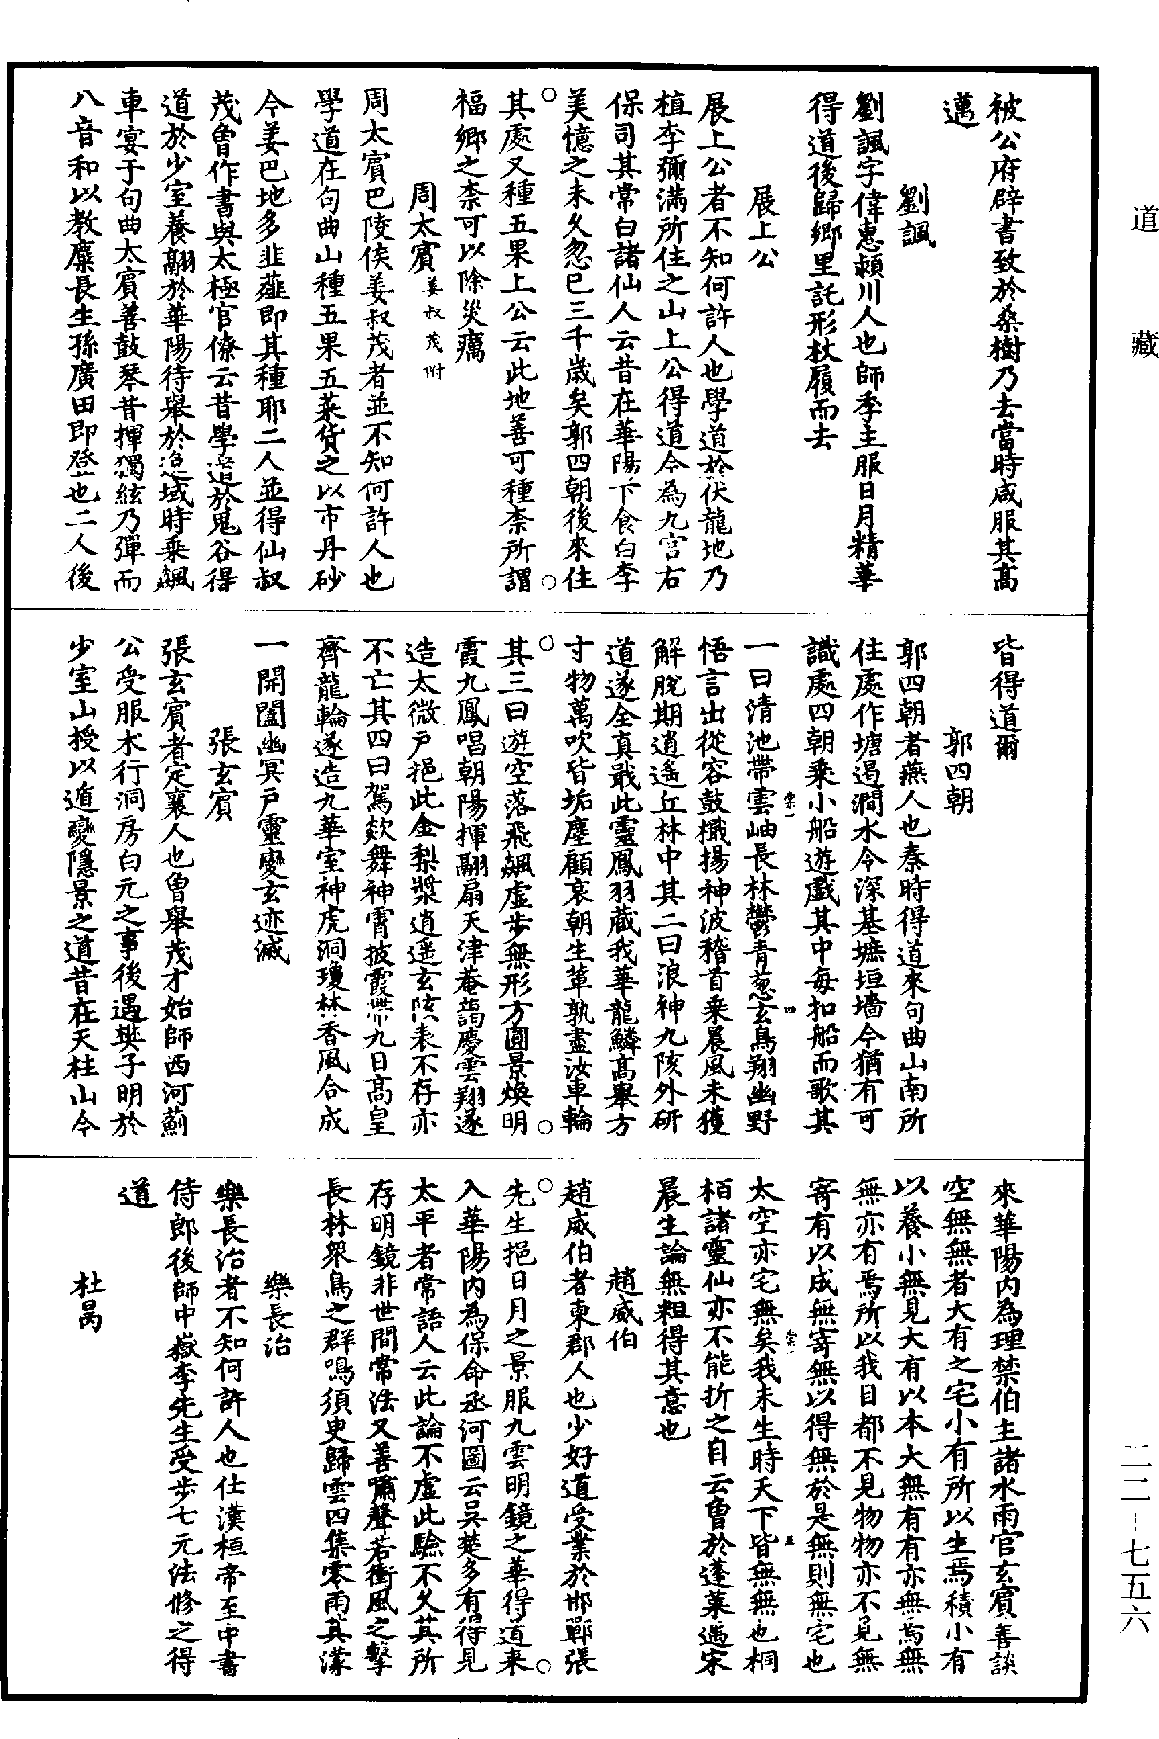 道藏
二二-七五六
被公府辟書致於桑樹乃去當時咸服其高
邁
劉諷
劉諷字偉惠潁川人也師季主服日月精華
得道後歸鄉里託形杖履而去
展上公
展上公者不知何許人也學道於伏龍地乃
植李彌滿所住之山上公得道今為九宮右
保司其常白諸仙人云昔在華陽下食白李
美憶之未久忽已三千歲矣郭四朝後來住
其處又種五果上公云此地善可種柰所謂
福鄉之柰可以除災癘
周太賓姜叔茂附
周太賓巴陵侯姜叔茂者並不知何許人也
學道在句曲山種五果五菜貨之以市丹砂
今姜巴地多韭薤即其種耶二人並得仙叔
茂曾作書與太極官僚云昔學道於鬼谷得
道於少室養翮於華陽待舉於逸域時乘飆
車宴于句曲太賓善鼓琴昔揮獨絃乃彈而
八音和以教糜長生孫廣田即登也二人後
皆得道爾
郭四朝
郭四朝者燕人也秦時得道來句曲山南所
住處作塘遏澗水令深基墌垣墻今猶有可
識處四朝乘小船遊戲其中每扣船而歌其
一曰清池帶雲岫長林鬱青葱玄鳥翔幽野
悟言出從容鼓檝揚神波稽首乘晨風未獲
解脫期逍遙丘林中其二曰浪神九陔外研
道遂全真戢此靈鳳羽藏我華龍鱗高舉方
寸物萬吹皆垢塵顧哀朝生蕈孰盡汝車輪
其三曰遊空落飛飆虛步無形方圓景煥明
霞九鳳唱朝陽揮翮扇天津菴藹慶雲翔遂
造太微戶挹此金梨漿逍遥玄陔表不存亦
不亡其四曰駕欻舞神霄披霞帶九日高皇
齊龍輪遂造九華室神虎洞瓊林香風合成
一開闔幽冥戶靈變玄迹滅
張玄賓
張玄賓者定襄人也曾舉茂才始師西河薊
公受服朮行洞房白元之事後遇樊子明於
少室山授以遁變隱景之道昔在天柱山今
來華陽內為理禁伯主諸水雨官玄賓善談
空無無者大有之宅小有所以生焉積小有
以養小無見大有以本大無有有亦無焉無
無亦有焉所以我目都不見物物亦不見無
寄有以成無寄無以得無於是無則無宅也
太空亦宅無矣我未生時天下皆無無也桐
栢諸靈仙亦不能折之自云曾於蓬萊遇宋
晨生論無粗得其意也
趙威伯
趙威伯者東郡人也少好道受業於邯鄲張
先生挹日月之景服九雲明鏡之華得道來
入華陽內為保命丞河圖云吳楚多有得見
太平者常語人云此論不虛此驗不久其所
存明鏡非世間常法又善嘯聲若衝風之擊
長林衆鳥之群鳴須臾歸雲四集零雨其濛
樂長治
樂長治者不知何許人也仕漢桓帝至中書
侍郎後師中嶽李先生受步七元法修之得
道
杜昺